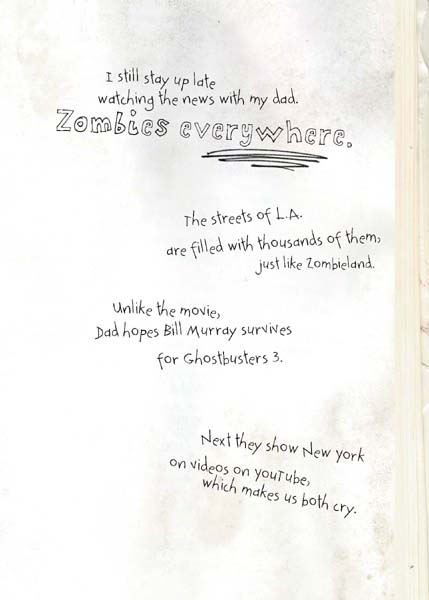 I still stay up late
watching the news with my dad.
Zombies everywhere.
The streets of L.A.
are filled with thousands of them,
just like Zombieland.
Unlike the movie,
Dad hopes Bill Murray survives
for Ghostbusters 3.
Next they show New York
on videos on YouTube,
which makes us both cry.